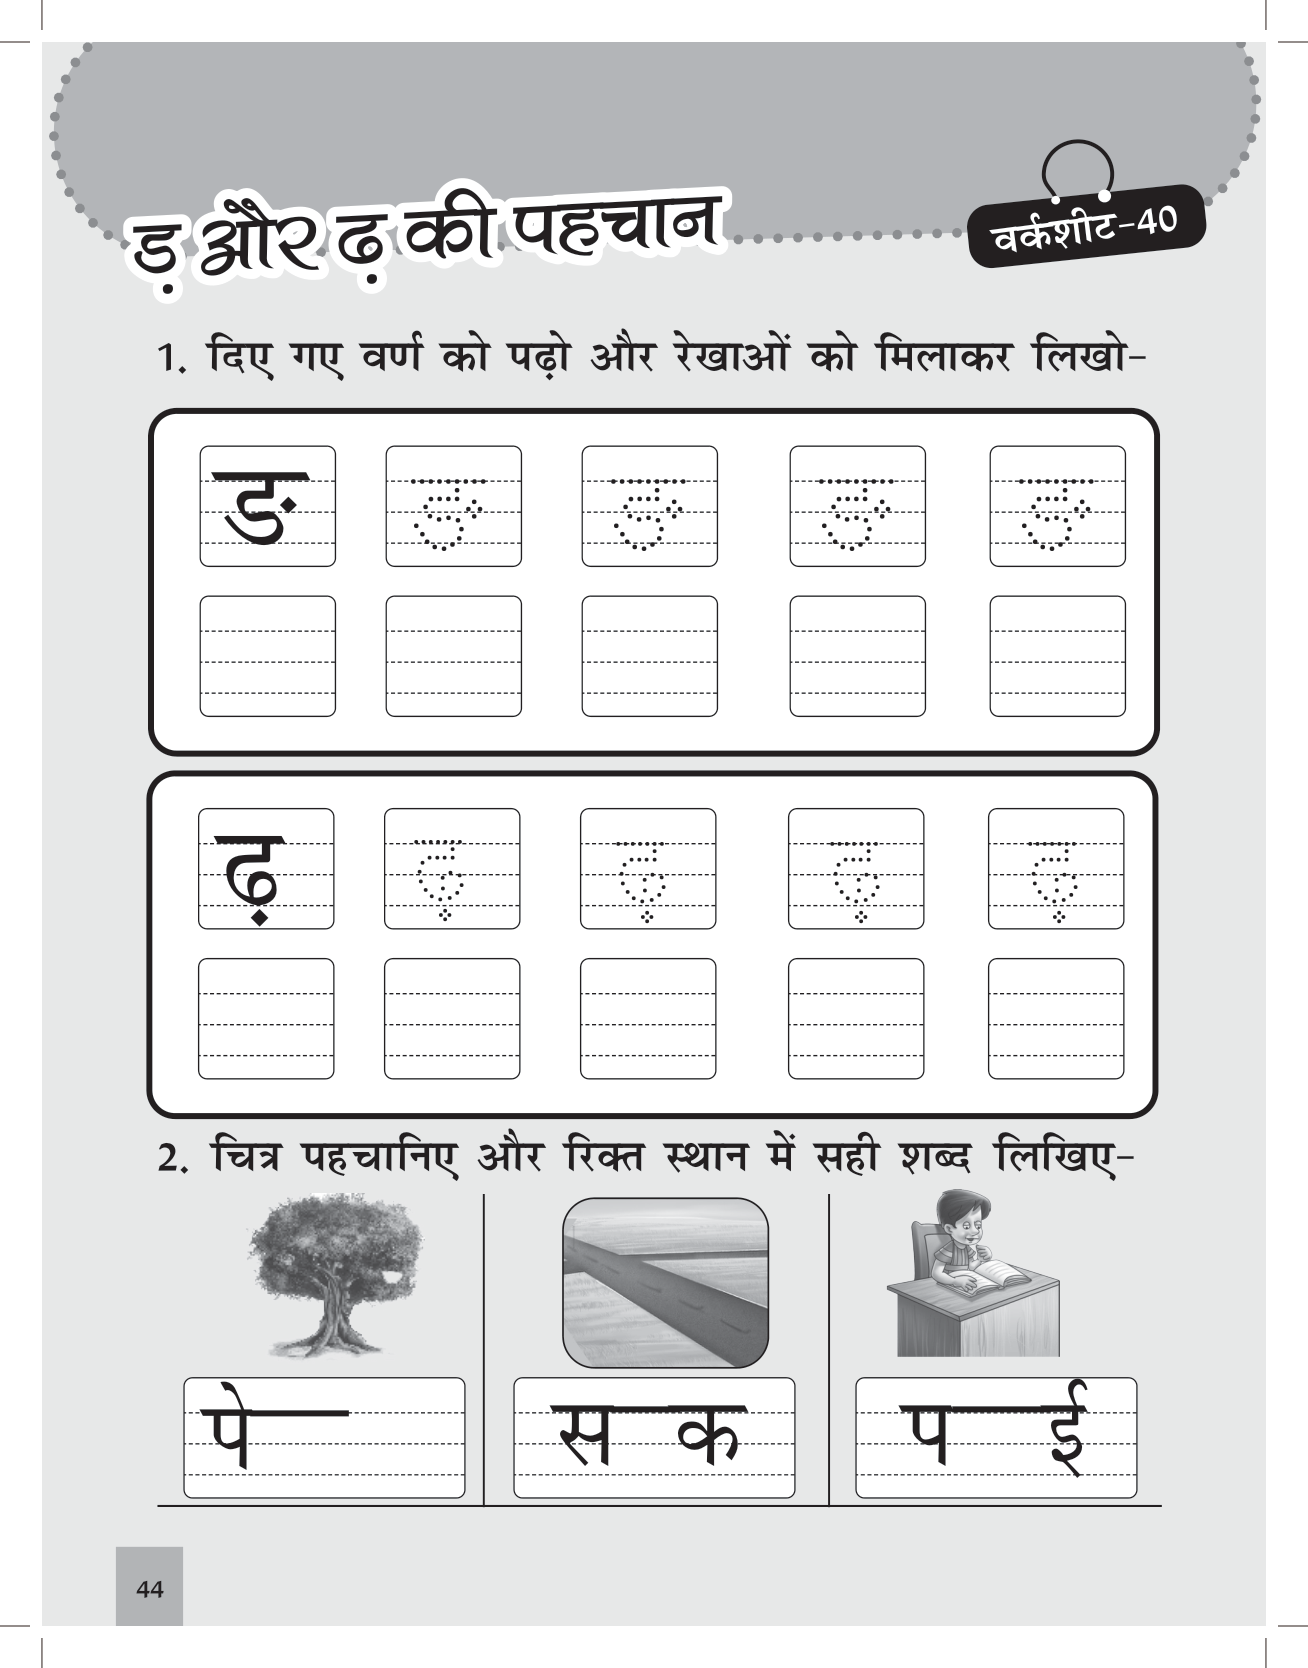 ड़ और ढ़ की पहचान
वर्कशीट-40
1. दिए गए वर्ण को पढ़ो और रेखाओं को मिलाकर लिखो-
ङ ङ ङ ङ ङ
ढ़ ढ़ ढ़ ढ़ ढ़
2. चित्र पहचानिए और रिक्त स्थान में सही शब्द लिखिए-
पे__ स__क प__ई
44